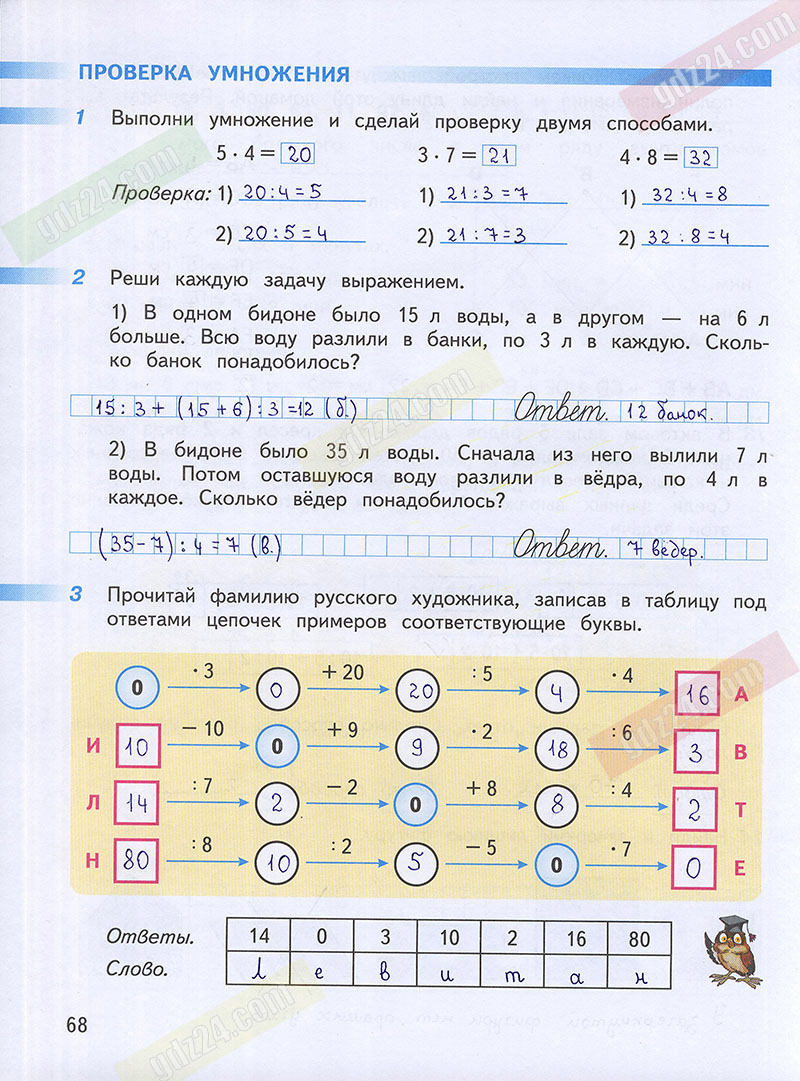 ПРОВЕРКА УМНОЖЕНИЯ
gdz24.com
1 Выполни умножение и сделай проверку двумя способами.
5 · 4 = 20 3 · 7 = 21 4 · 8 = 32
Проверка: 1) 20:4=5 1) 21:3=7 1) 32:4=8
2) 20:5=4 2) 21:7=3 2) 32:8=4
gdz24.com
2 Реши каждую задачу выражением.
1) В одном бидоне было 15 л воды, а в другом — на 6 л
больше. Всю воду разлили в банки, по 3 л в каждую. Сколь-
ко банок понадобилось?
15:3+(15+6):3=12 (б.) Ответ. 12 банок.
gdz24.com
2) В бидоне было 35 л воды. Сначала из него вылили 7 л
воды. Потом оставшуюся воду разлили в вёдра, по 4 л в
каждое. Сколько вёдер понадобилось?
(35-7):4=7 (в.) Ответ. 7 вёдер.
3 Прочитай фамилию русского художника, записав в таблицу под
ответами цепочек примеров соответствующие буквы.
0 · 3 0 + 20 20 : 5 4 · 4 16 А
И 10 − 10 0 + 9 9 · 2 18 : 6 3 В
Л 14 : 7 2 − 2 0 + 8 8 : 4 2 Т
Н 80 : 8 10 : 2 5 − 5 0 · 7 0 Е
gdz24.com
Ответы. 14 0 3 10 2 16 80
Слово. л е в и т а н
68
gdz24.com